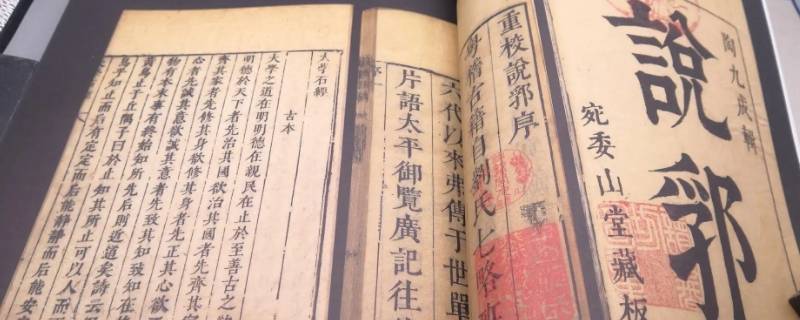 陶九成輯
說郛
宛委山堂藏板
重校說郛序
稽古籍自劉氏七略
六代以來弗傳于世單
片語太平御覽廣記往
大學石經
古本
大學之道在明明德在親民在止於至善古之欲
明德於天下者先治其國欲治其國者先齊
齊其家者先修其身欲修其身者先正其心欲
心者先誠其意欲誠其意者先致其知致知在
物有本末事有終始知所先後則近道矣詩云
鳥止于丘隅子曰於止知其所止可以人而
鳥乎知止而后有定定而后能靜靜而后能安